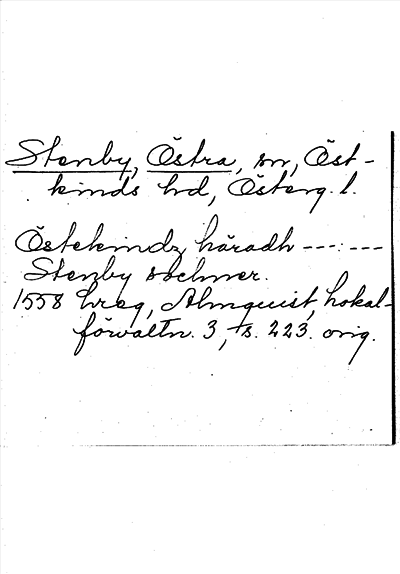 Stenby, Östra, sn, Öst-
kinds hd, Österg. l.
Östekindz häradh ---:---
Stenby sochner.
1558 hreg, Almquist, Lokal-
förvaltn. 3, s. 223. orig.